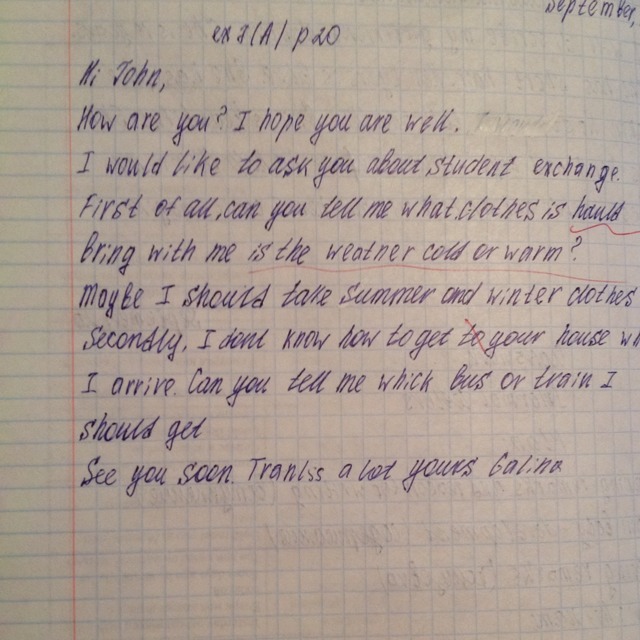 September,
ex 3(A) p20
Hi John,
How are you? I hope you are well.
I would like to ask you about student exchange.
First of all, can you tell me what clothes is hould
bring with me is the weather cold or warm?
Maybe I should take summer and winter clothes
Secondly, I dont know how to get to your house wh
I arrive. Can you tell me which bus or train I
should get
See you soon. Tranks a lot yours Galina